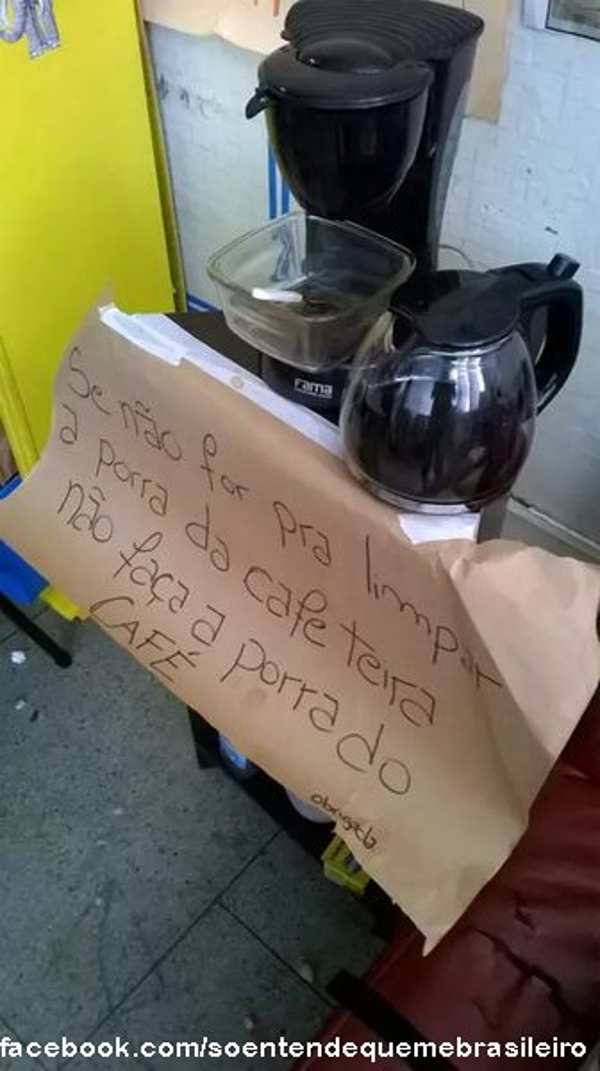 fama
Se não for pra limpar
a porra da cafeteira
não faça a porra do
CAFÉ
obrigada
facebook.com/soentendequemebrasileiro